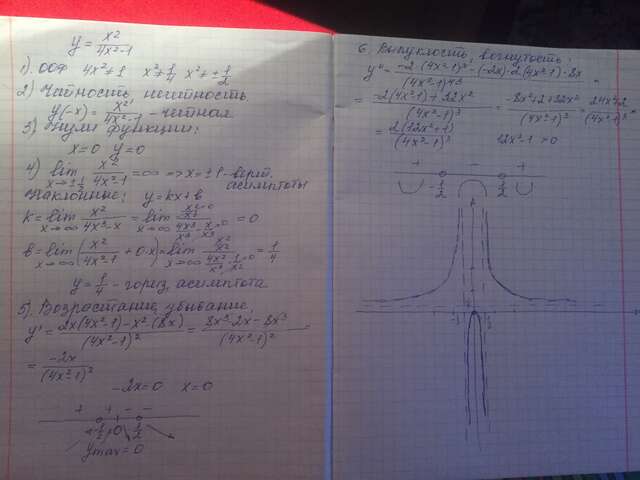 y = x²/(4x²-1)
1). ООФ 4x² ≠ 1 x² ≠ 1/4 x ≠ ± 1/2
2) Чатность нечатность
y(-x) = x²/(4x²-1) - четная
3) Нули функции:
x=0 y=0
4) lim x→±1/2 x²/(4x²-1) = ∞ => x = ±1 - верт. асимптоты
Наклонные: y = kx + b
k = lim x→∞ x²/(4x³-x) = lim x→∞ = 0
b = lim x→∞ (x²/(4x²-1) + 0·x) = lim x→∞ = 1/4
y = 1/4 - гориз. асимптота
5). Возрастание, убывание
y' = (2x(4x²-1) - x²(8x))/(4x²-1)² = (8x³-2x-8x³)/(4x²-1)² =
= -2x/(4x²-1)²
-2x=0 x=0
+ + - -
-1/2 0 1/2
y max = 0
6. Выпуклость, вогнутость:
y'' = (-2(4x²-1)² - (-2x)·2(4x²-1)·8x)/(4x²-1)⁴ =
= (-2(4x²-1) + 32x²)/(4x²-1)³ = (-8x²+2+32x²)/(4x²-1)³ = (24x²+2)/(4x²-1)³ =
= 2(12x²+1)/(4x²-1)³ 12x²-1 > 0
+ - +
-1/2 1/2